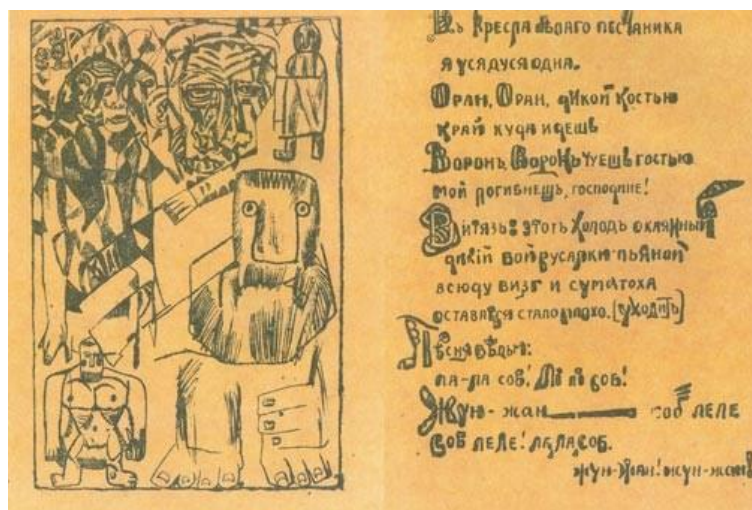 Въ кресла бѣлаго песчаника
я усядуся одна.
Оран, Оран, дикой костью
край куда идешь
Воронъ, Воронъ чуешь гостью
мой погибнешь, господине!
Витязь: этотъ холодъ окаянный
дикій вой русалки пьяной
всюду визг и суматоха
оставатся стало плохо. (уходитъ)
Пѣсня вѣдьм:
ла-ла сов! Ли ли соб!
Жун-жан соб леле
соб леле! ла,ла,соб.
жун-жан! жун-жан!